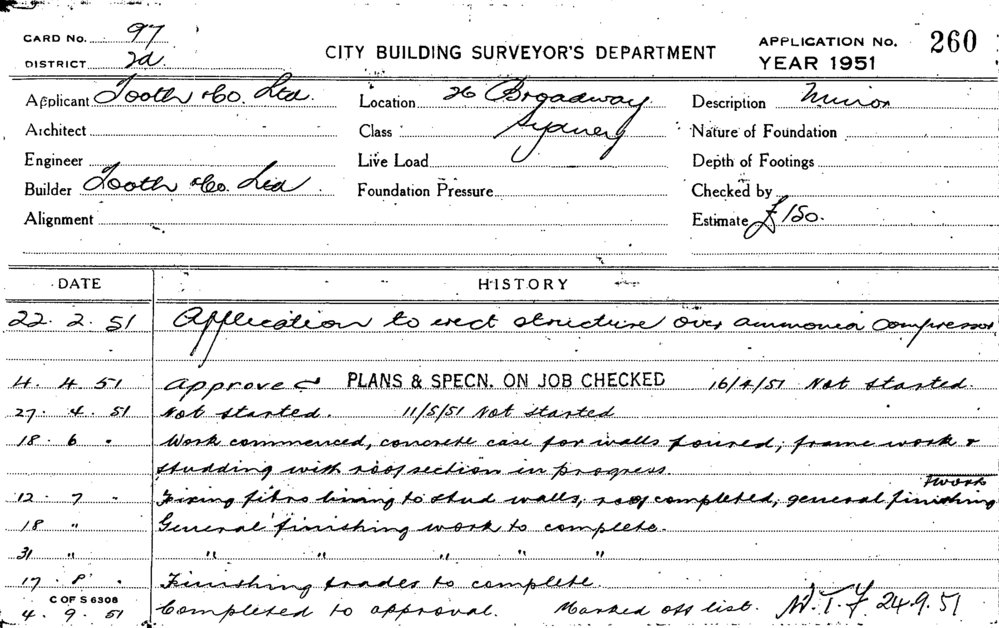 CARD No. 97
DISTRICT 2d.
CITY BUILDING SURVEYOR'S DEPARTMENT
APPLICATION No. 260
YEAR 1951
Applicant Tooth & Co. Ltd.
Architect
Engineer
Builder Tooth & Co. Ltd
Alignment
Location 26 Broadway
Class Sydney
Live Load
Foundation Pressure
Description Minor
Nature of Foundation
Depth of Footings
Checked by
Estimate £150.
DATE HISTORY
22. 2. 51 Application to erect structure over ammonia compressor
4. 4. 51 Approved PLANS & SPECN. ON JOB CHECKED 16/4/51 Not started.
27. 4. 51 Not started. 11/5/51 Not started
18. 6 " Work commenced, concrete case for walls poured; frame work &
studding with roof section in progress.
12. 7 " Fixing fibro lining to stud walls, roof completed, general finishing work
18 " General finishing work to complete.
31 " " " " " "
17. 8. " Finishing trades to complete.
C OF S 6308
4. 9. 51 Completed to approval. Marked off list. 24.9.51